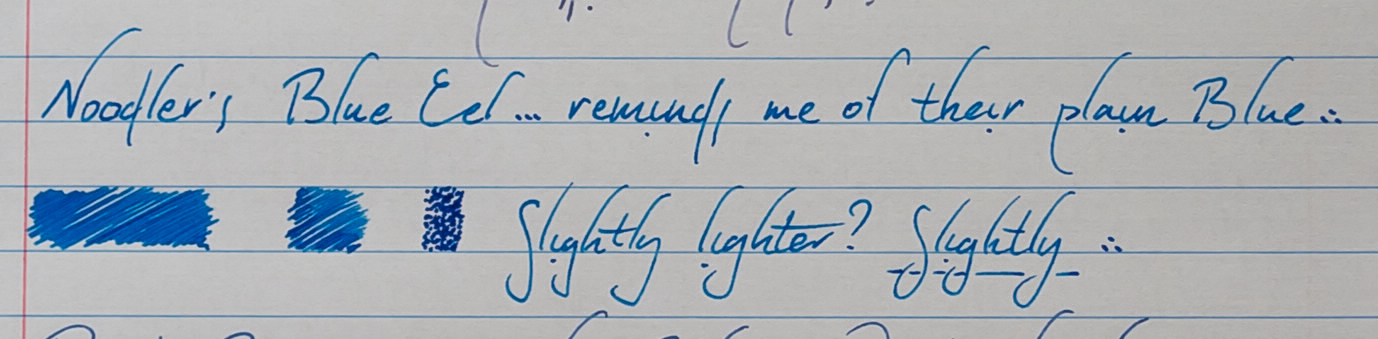 Noodler's Blue Eel... reminds me of their plain Blue ∴
Slightly lighter? Slightly ∴